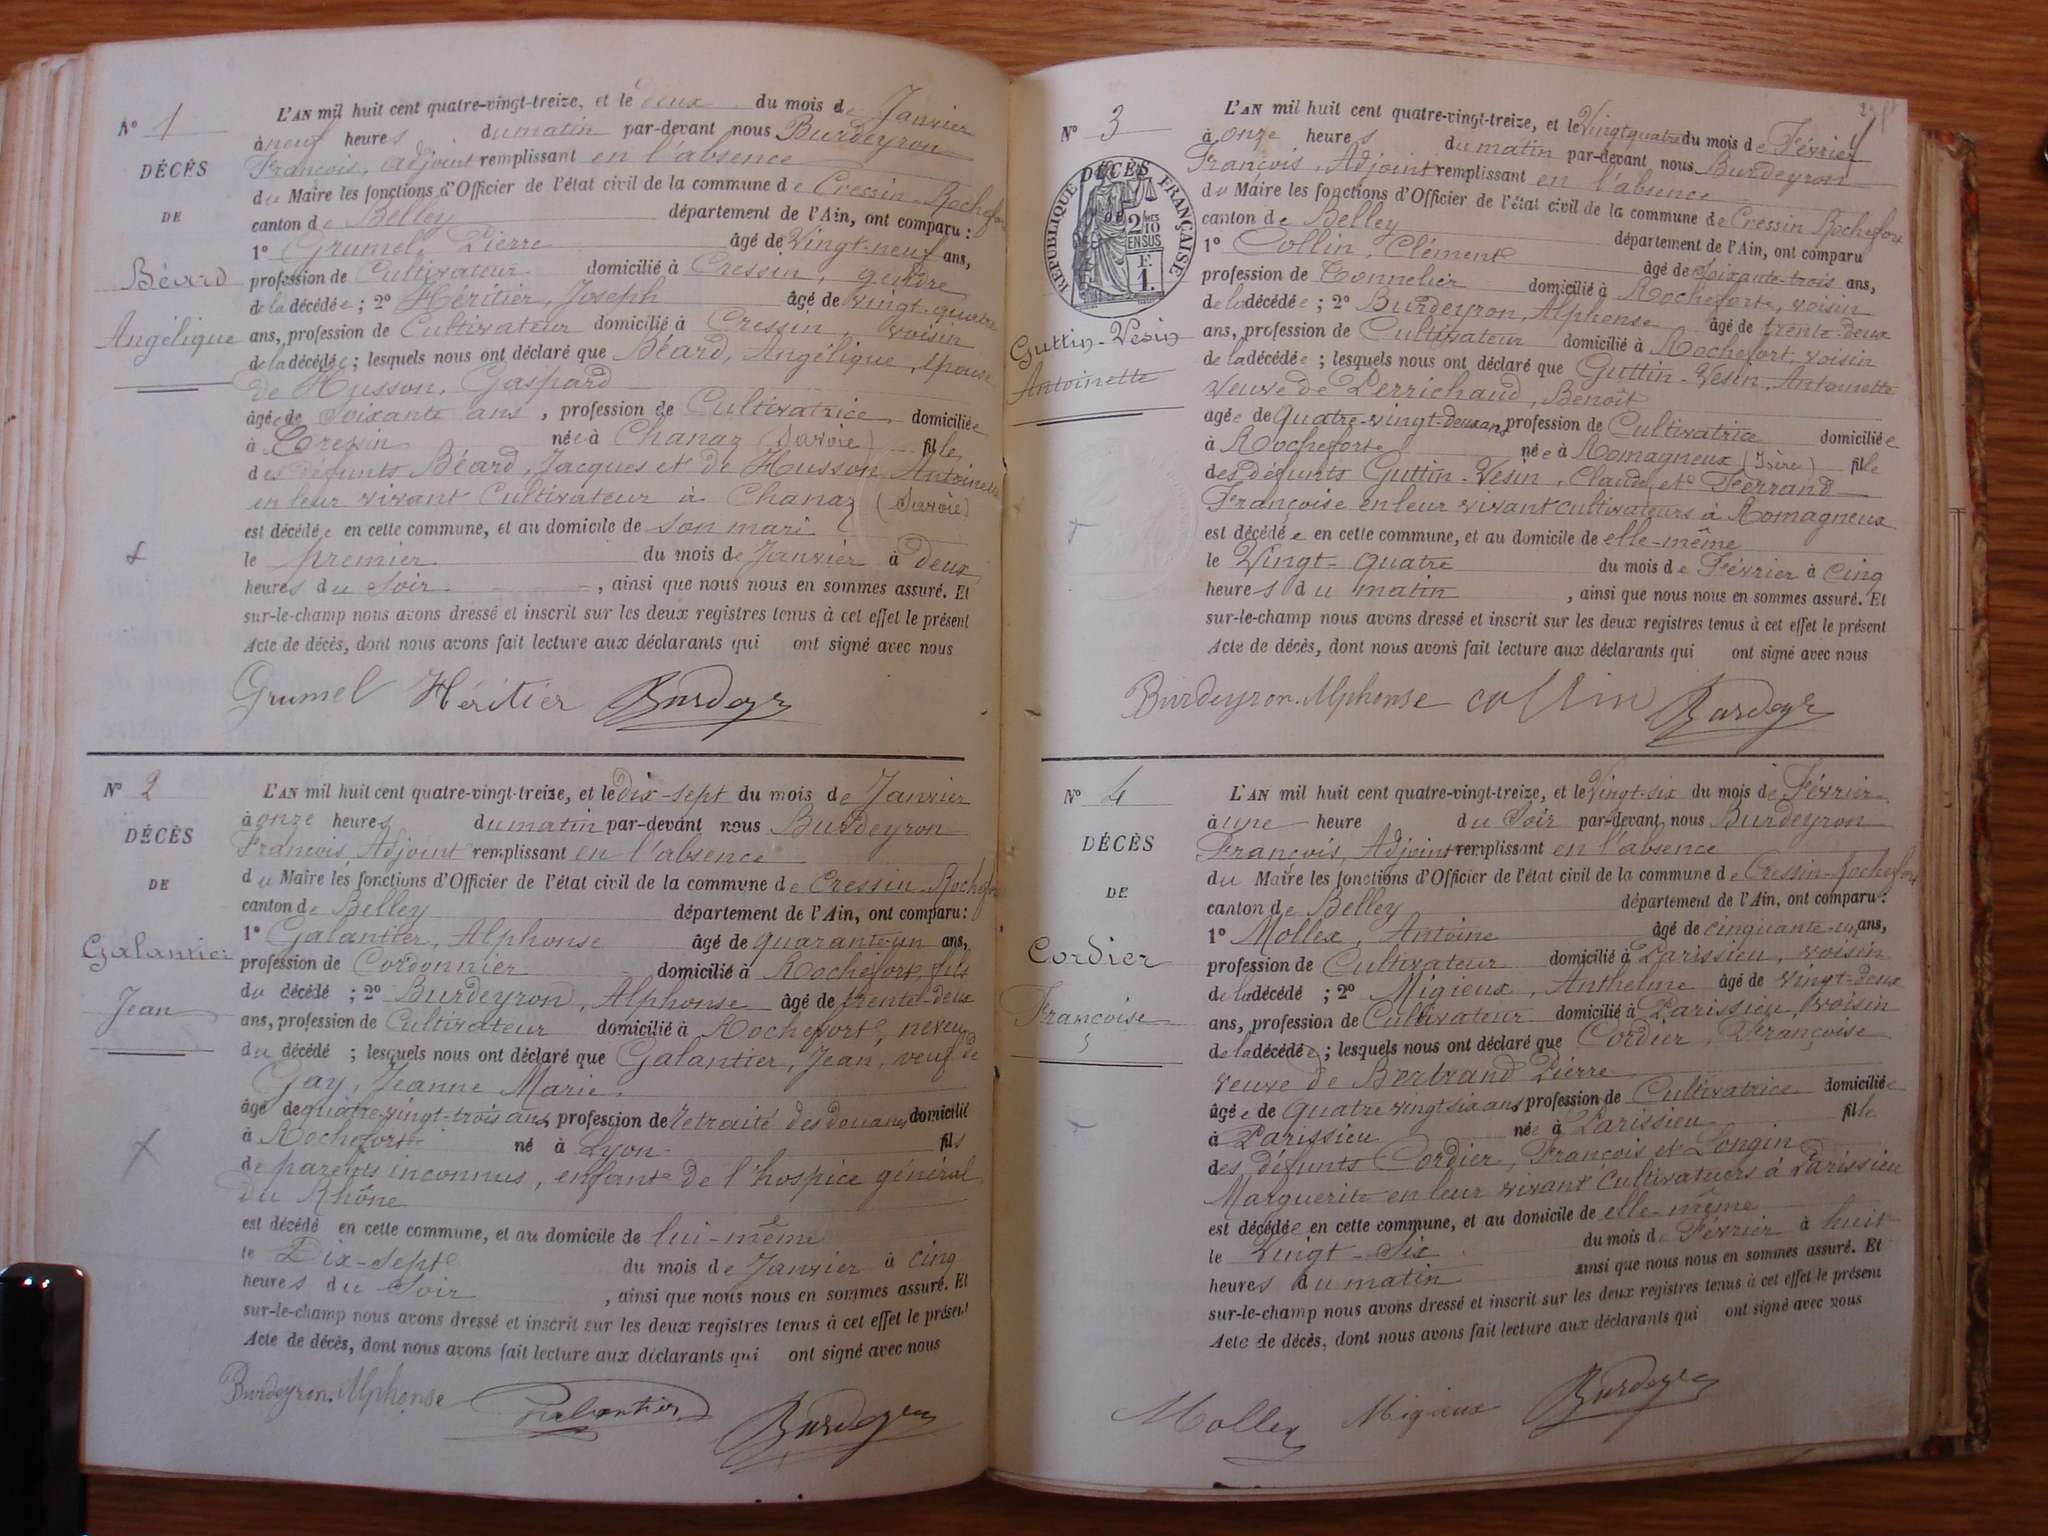 N° 1
DÉCÈS
DE
Béard
Angélique
L'AN mil huit cent quatre-vingt-treize, et le deux du mois de Janvier
à neuf heures du matin par-devant nous Burdeyron
François, adjoint remplissant en l'absence
du Maire les fonctions d'Officier de l'état civil de la commune de Cressin-Rochefort
canton de Belley département de l'Ain, ont comparu :
1° Grumel, Pierre âgé de Vingt-neuf ans,
profession de Cultivateur domicilié à Cressin, gendre
de la décédée ; 2° Héritier, Joseph âgé de vingt-quatre
ans, profession de Cultivateur domicilié à Cressin, voisin
de la décédée ; lesquels nous ont déclaré que Béard, Angélique, épouse
de Husson, Gaspard
âgée de soixante ans, profession de Cultivatrice domiciliée
à Cressin née à Chanaz (Savoie) fille
des défunts Béard, Jacques et de Husson Antoinette
en leur vivant Cultivateur à Chanaz (Savoie)
est décédée en cette commune, et au domicile de son mari
le premier du mois de Janvier à deux
heures du Soir, ainsi que nous nous en sommes assuré. Et
sur-le-champ nous avons dressé et inscrit sur les deux registres tenus à cet effet le présent
Acte de décès, dont nous avons fait lecture aux déclarants qui ont signé avec nous
Grumel Héritier Burdeyr
N° 2
DÉCÈS
DE
Galantier
Jean
L'AN mil huit cent quatre-vingt-treize, et le dix-sept du mois de Janvier
à onze heures du matin par-devant nous Burdeyron
François, Adjoint remplissant en l'absence
du Maire les fonctions d'Officier de l'état civil de la commune de Cressin-Rochefort
canton de Belley département de l'Ain, ont comparu :
1° Galantier, Alphonse âgé de quarante-un ans,
profession de Cordonnier domicilié à Rochefort, fils
du décédé ; 2° Burdeyron, Alphonse âgé de trente-deux
ans, profession de Cultivateur domicilié à Rochefort, neveu
du décédé ; lesquels nous ont déclaré que Galantier, Jean, veuf de
Gay, Jeanne Marie
âgé de quatre-vingt-trois ans, profession de retraité des douanes domicilié
à Rochefort né à Lyon fils
de parents inconnus, enfant de l'hospice général
du Rhône
est décédé en cette commune, et au domicile de lui-même
le Dix-sept du mois de Janvier à cinq
heures du Soir, ainsi que nous nous en sommes assuré. Et
sur-le-champ nous avons dressé et inscrit sur les deux registres tenus à cet effet le présent
Acte de décès, dont nous avons fait lecture aux déclarants qui ont signé avec nous
Burdeyron Alphonse Galantier Burdeyron
N° 3
DÉCÈS
DE
RÉPUBLIQUE FRANÇAISE
2/10 MES
EN SUS
F.
1.
Guttin-Vesin
Antoinette
L'AN mil huit cent quatre-vingt-treize, et le Vingt quatre du mois de Février
à onze heures du matin par-devant nous Burdeyron
François, Adjoint remplissant en l'absence
du Maire les fonctions d'Officier de l'état civil de la commune de Cressin Rochefort
canton de Belley département de l'Ain, ont comparu
1° Collin, Clément âgé de Soixante-trois ans,
profession de Tonnelier domicilié à Rochefort, voisin
de la décédée ; 2° Burdeyron, Alphonse âgé de trente-deux
ans, profession de Cultivateur domicilié à Rochefort, voisin
de la décédée ; lesquels nous ont déclaré que Guttin-Vesin, Antoinette
veuve de Perrichaud, Benoit
âgée de quatre-vingt-deux ans, profession de Cultivatrice domiciliée
à Rochefort née à Romagneux (Isère) fille
des défunts Guttin-Vesin, Claude, et Ferrand
Françoise en leur vivant cultivateurs à Romagneux
est décédée en cette commune, et au domicile de elle-même
le Vingt-quatre du mois de Février à cinq
heures du matin, ainsi que nous nous en sommes assuré. Et
sur-le-champ nous avons dressé et inscrit sur les deux registres tenus à cet effet le présent
Acte de décès, dont nous avons fait lecture aux déclarants qui ont signé avec nous
Burdeyron Alphonse collin Burdeyr
N° 4
DÉCÈS
DE
Cordier
Françoise
L'AN mil huit cent quatre-vingt-treize, et le Vingt-six du mois de Février
à une heure du Soir par-devant nous Burdeyron
François, Adjoint remplissant en l'absence
du Maire les fonctions d'Officier de l'état civil de la commune de Cressin-Rochefort
canton de Belley département de l'Ain, ont comparu :
1° Mollex, Antoine âgé de cinquante-un ans,
profession de Cultivateur domicilié à Parissieu, voisin
de la décédé ; 2° Migieux, Anthelme âgé de vingt-deux
ans, profession de Cultivateur domicilié à Parissieu, voisin
de la décédée ; lesquels nous ont déclaré que Cordier, Françoise
veuve de Bertrand Pierre
âgée de quatre vingt six ans, profession de Cultivatrice domiciliée
à Parissieu née à Parissieu fille
des défunts Cordier, François et Longin
Marguerite en leur vivant Cultivateurs à Parissieu
est décédée en cette commune, et au domicile de elle-même
le Vingt-Six du mois de Février à huit
heures du matin ainsi que nous nous en sommes assuré. Et
sur-le-champ nous avons dressé et inscrit sur les deux registres tenus à cet effet le présent
Acte de décès, dont nous avons fait lecture aux déclarants qui ont signé avec nous
Mollex Migieux Burdeyron